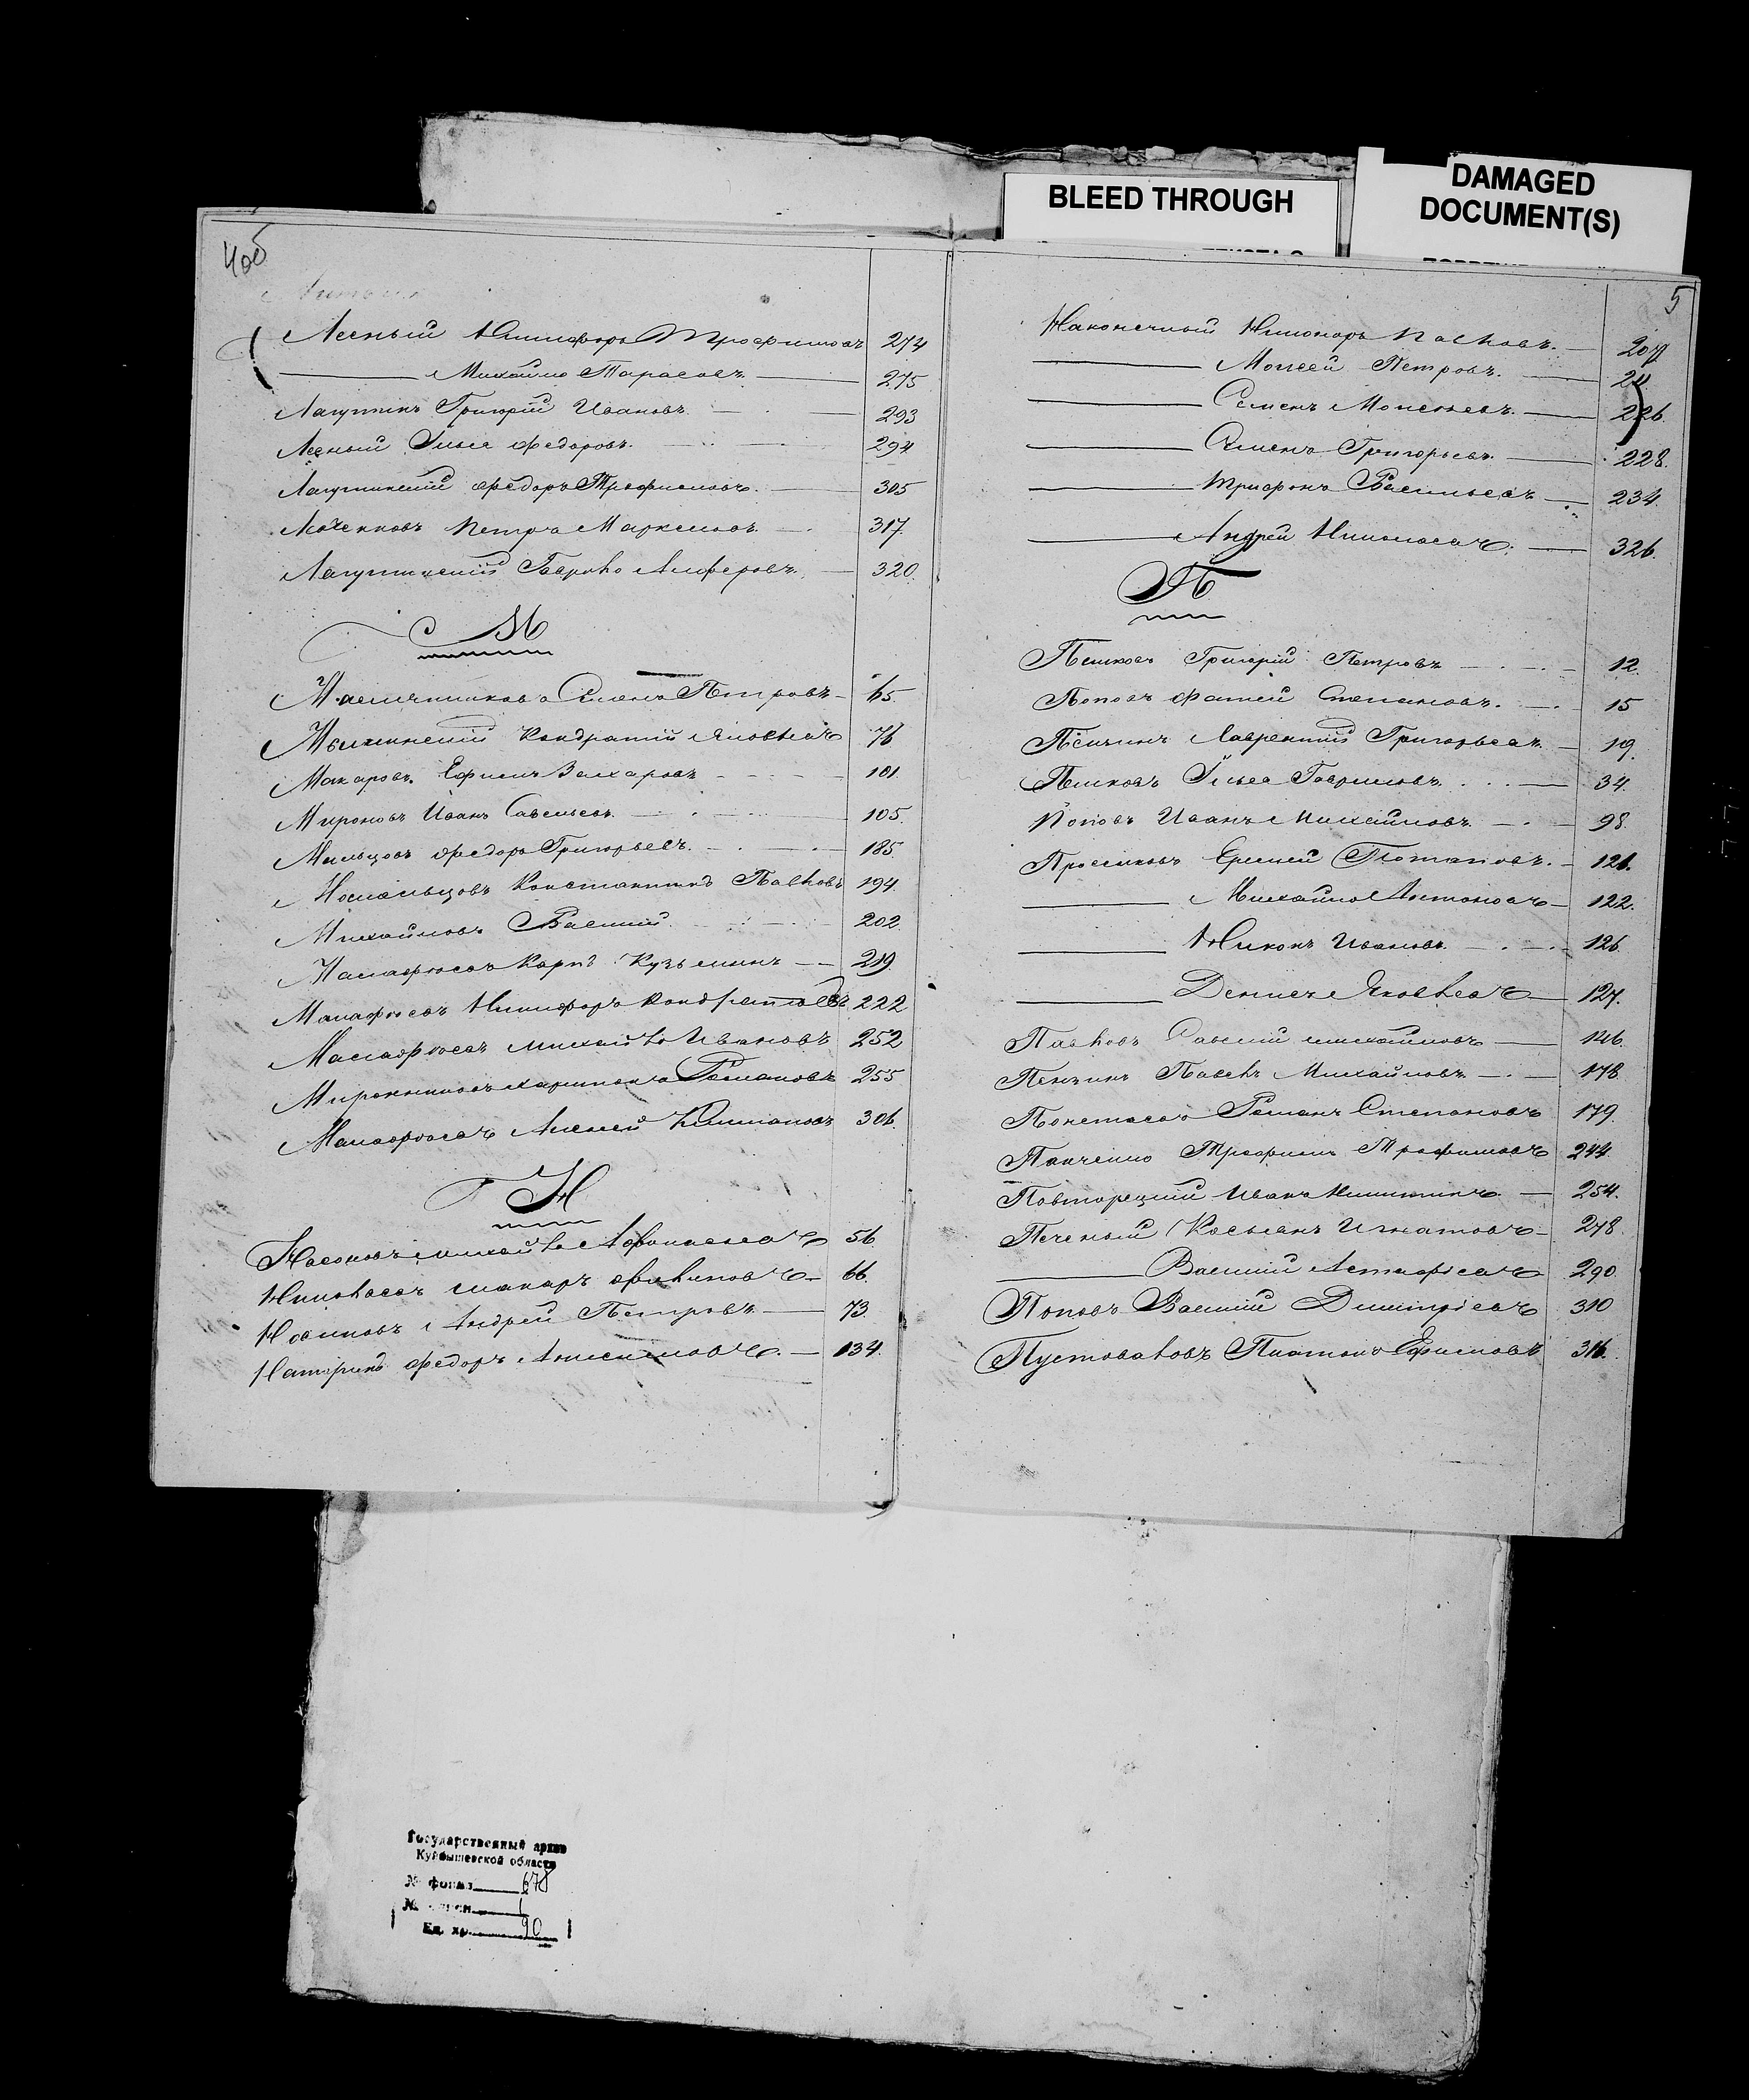 BLEED THROUGH
DAMAGED
DOCUMENT(S)
4об
Лесный Никифоръ Трофимовъ 274
Михайло Тарасовъ 275
Лагутинъ Григорій Ивановъ 293
Лесный Илья Федоровъ 294
Лагутинскій Федоръ Трофимовъ 305
Петръ 317
Лагутинскій Гаврило 320
М
Масленниковъ Семенъ Петровъ 65
Кондратій Яковлевъ 76
Макаровъ Ефимъ Захаровъ 101
Мироновъ Иванъ Савельевъ 105
Мальцовъ Федоръ Григорьевъ 185
Константинъ Павловъ 194
Михайловъ Василій 202
Малафѣевъ Карпъ Кузьминъ 219
Малафѣевъ Никифоръ Кондратьевъ 222
Малафѣевъ Михайло Ивановъ 252
Харитонъ Романовъ 255
Малафѣевъ Алексей 306
Н
Носковъ Михайло Афонасьевъ 56
Николаевъ Макаръ Филиповъ 66
Новиковъ Андрей Петровъ 73
Федоръ Анисимовъ 134
5
Наконечный Никоноръ Павловъ 207
Моисей Петровъ 211
Семенъ Моисеевъ 226
Семенъ Григорьевъ 228
Трифонъ Васильевъ 234
Андрей Николаевъ 326
П
Пешковъ Григорій Петровъ 12
Поповъ Фатей Степановъ 15
Лаврентій Григорьевъ 19
Пешковъ Илья Гавриловъ 34
Поповъ Иванъ Михайловъ 98
Еремей Потаповъ 121
Михайло Антоновъ 122
Никонъ Ивановъ 126
Денисъ Яковлевъ 127
Павловъ Савелій Михайловъ 146
Пензинъ Павелъ Михайловъ 178
Романъ Степановъ 179
Панченко Трофимъ Трофимовъ 244
Повторецкій Иванъ Никитинъ 254
Печеный Касьянъ Игнатовъ 278
Василій Астафьевъ 290
Поповъ Василій Димитріевъ 310
Пустоваловъ Платонъ Ефимовъ 316
Государственный архив
Куйбышевской области
№ фонда 678
№ описи 1
Ед. хр. 90